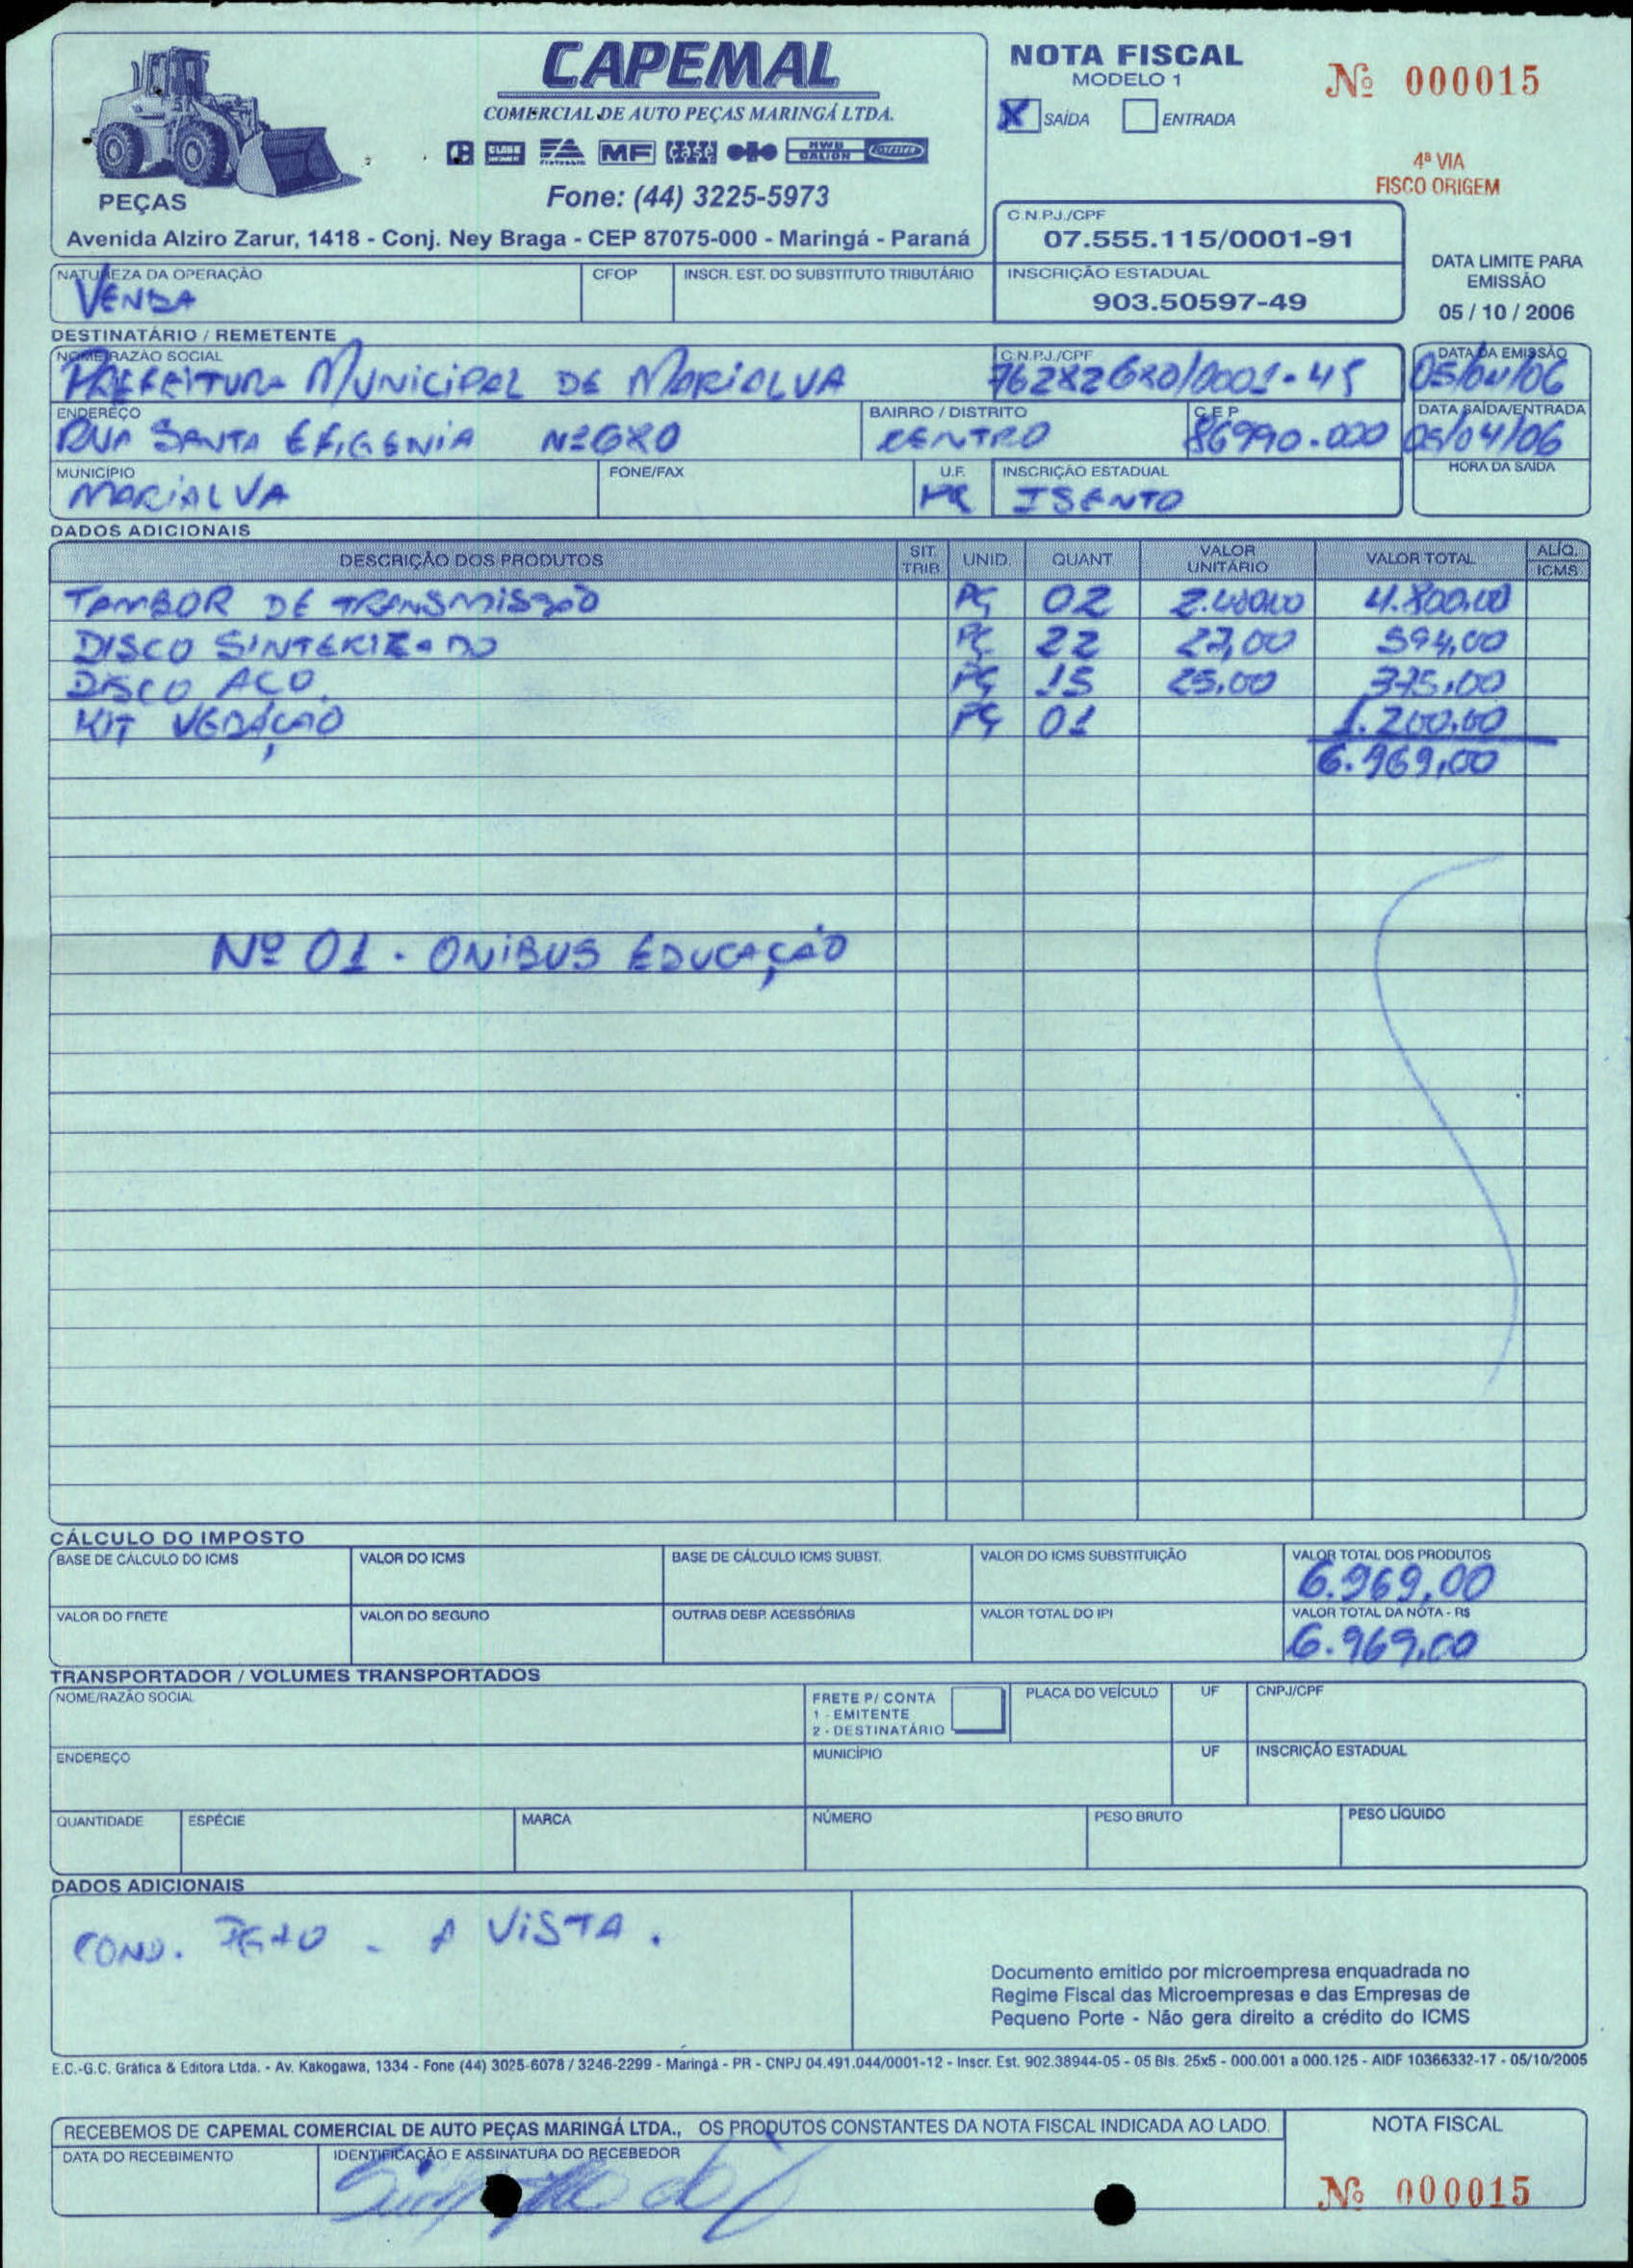 CAPEMAL
COMERCIAL DE AUTO PEÇAS MARINGÁ LTDA.
MF case
PEÇAS
Fone: (44) 3225-5973
Avenida Alziro Zarur, 1418 - Conj. Ney Braga - CEP 87075-000 - Maringá - Paraná
NOTA FISCAL
MODELO 1
X SAÍDA ENTRADA
Nº 000015
4ª VIA
FISCO ORIGEM
C.N.P.J./CPF
07.555.115/0001-91
INSCRIÇÃO ESTADUAL
903.50597-49
DATA LIMITE PARA
EMISSÃO
05 / 10 / 2006
NATUREZA DA OPERAÇÃO CFOP INSCR. EST. DO SUBSTITUTO TRIBUTÁRIO
VENDA
DESTINATÁRIO / REMETENTE
NOME/RAZÃO SOCIAL C.N.P.J./CPF DATA DA EMISSÃO
PREFEITURA MUNICIPAL DE MARIALVA 76282680/0001-45 05/04/06
ENDEREÇO BAIRRO / DISTRITO C E P DATA SAÍDA/ENTRADA
RUA SANTA EFIGENIA Nº 680 CENTRO 86990-000 05/04/06
MUNICÍPIO FONE/FAX U.F. INSCRIÇÃO ESTADUAL HORA DA SAÍDA
MARIALVA PR ISENTO
DADOS ADICIONAIS
DESCRIÇÃO DOS PRODUTOS SIT. TRIB. UNID. QUANT VALOR UNITÁRIO VALOR TOTAL ALÍQ. ICMS
TAMBOR DE TRANSMISSÃO PÇ 02 2.400,00 4.800,00
DISCO SINTERIZADO PÇ 22 27,00 594,00
DISCO AÇO PÇ 15 25,00 375,00
KIT VEDAÇÃO PÇ 01 1.200,00
6.969,00
Nº 01 - ONIBUS EDUCAÇÃO
CÁLCULO DO IMPOSTO
BASE DE CÁLCULO DO ICMS VALOR DO ICMS BASE DE CÁLCULO ICMS SUBST. VALOR DO ICMS SUBSTITUIÇÃO VALOR TOTAL DOS PRODUTOS
6.969,00
VALOR DO FRETE VALOR DO SEGURO OUTRAS DESP. ACESSÓRIAS VALOR TOTAL DO IPI VALOR TOTAL DA NOTA - R$
6.969,00
TRANSPORTADOR / VOLUMES TRANSPORTADOS
NOME/RAZÃO SOCIAL FRETE P/ CONTA PLACA DO VEÍCULO UF CNPJ/CPF
1 - EMITENTE
2 - DESTINATÁRIO
ENDEREÇO MUNICÍPIO UF INSCRIÇÃO ESTADUAL
QUANTIDADE ESPÉCIE MARCA NÚMERO PESO BRUTO PESO LÍQUIDO
DADOS ADICIONAIS
COND. PGTO - A VISTA.
Documento emitido por microempresa enquadrada no
Regime Fiscal das Microempresas e das Empresas de
Pequeno Porte - Não gera direito a crédito do ICMS
E.C.-G.C. Gráfica & Editora Ltda. - Av. Kakogawa, 1334 - Fone (44) 3025-6078 / 3246-2299 - Maringá - PR - CNPJ 04.491.044/0001-12 - Inscr. Est. 902.38944-05 - 05 Bls. 25x5 - 000.001 a 000.125 - AIDF 10366332-17 - 05/10/2005
RECEBEMOS DE CAPEMAL COMERCIAL DE AUTO PEÇAS MARINGÁ LTDA., OS PRODUTOS CONSTANTES DA NOTA FISCAL INDICADA AO LADO.
DATA DO RECEBIMENTO IDENTIFICAÇÃO E ASSINATURA DO RECEBEDOR
NOTA FISCAL
Nº 000015